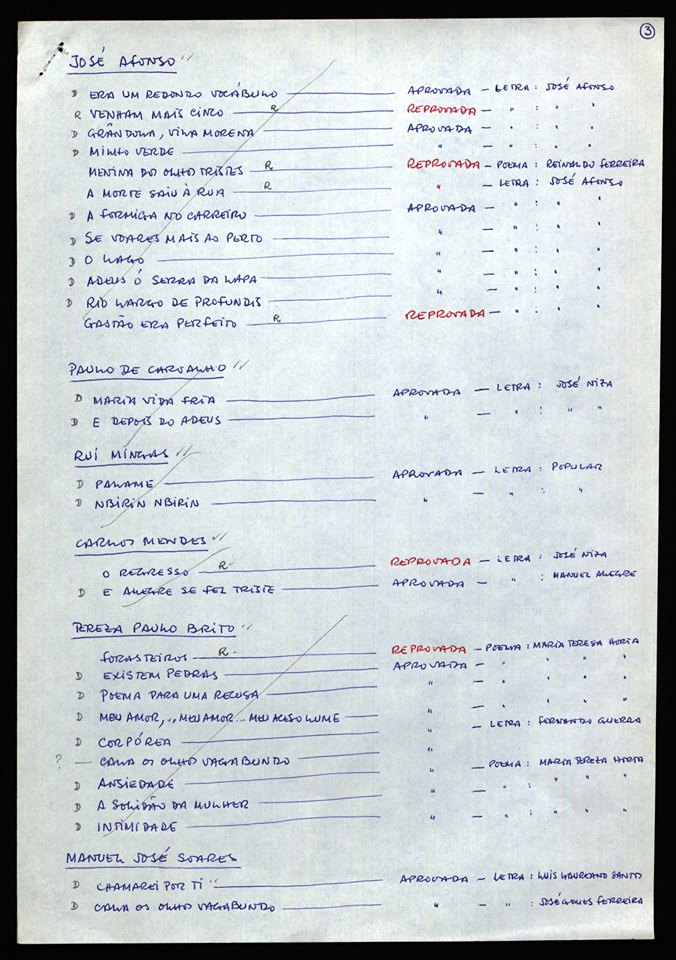 3
JOSÉ AFONSO "
D ERA UM REDONDO VOCÁBULO — APROVADA — LETRA : JOSÉ AFONSO
R VENHAM MAIS CINCO R — REPROVADA — " : " "
D GRÂNDOLA, VILA MORENA — APROVADA — " : " "
D MILHO VERDE — " — " : " "
MENINA DO OLHO TRISTES R — REPROVADA — POEMA : REINALDO FERREIRA
A MORTE SAIU À RUA R — " — LETRA : JOSÉ AFONSO
D A FORMIGA NO CARREIRO — APROVADA — " : " "
D SE VOARES MAIS AO PERTO — " — " : " "
D O LAGO — " — " : " "
D ADEUS Ó SERRA DA LAPA — " — " : " "
D RIO LARGO DE PROFUNDIS — " — " : " "
GASTÃO ERA PERFEITO R — REPROVADA — " : " "
PAULO DE CARVALHO "
D MARIA VIDA FRIA — APROVADA — LETRA : JOSÉ NIZA
D E DEPOIS DO ADEUS — " — " : " "
RUI MINGAS "
D PALAME — APROVADA — LETRA : POPULAR
D NBIRIN NBIRIN — " — " : "
CARLOS MENDES "
O REGRESSO R — REPROVADA — LETRA : JOSÉ NIZA
D E ALEGRE SE FEZ TRISTE — APROVADA — " : MANUEL ALEGRE
TEREZA PAULO BRITO "
FORASTEIROS R — REPROVADA — POEMA : MARIA TERESA HORTA
D EXISTEM PEDRAS — APROVADA — " : " " "
D POEMA PARA UMA RECUSA — " — " : " " "
D MEU AMOR,... MEU AMOR... MEU ACESO LUME — " — " : " " "
D CORPÓREA — " — LETRA : FERNANDO GUERRA
? — CALA OS OLHO VAGABUNDO — "
D ANSIEDADE — " — POEMA : MARIA TEREZA HORTA
D A SOLIDÃO DA MULHER — " — " : " " "
D INTIMIDADE — " — " : " " "
MANUEL JOSÉ SOARES
D CHAMAREI POR TI " — APROVADA — LETRA : LUÍS LAUREANO SANTOS
D CALA OS OLHO VAGABUNDO — " — " : JOSÉ GOMES FERREIRA